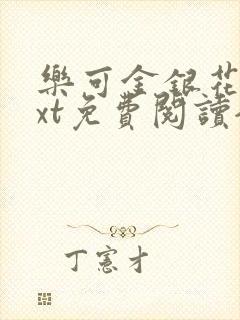 樂可金銀花
xt免費閱讀
丁憲才